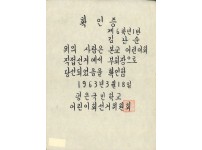 확인증
제6학년1반
김난순
위의 사람은 본교 어린이회
직접선거에서 부회장으로
당선되었음을 확인함
1963年3月18日
국민학교
어린이회선거위원회